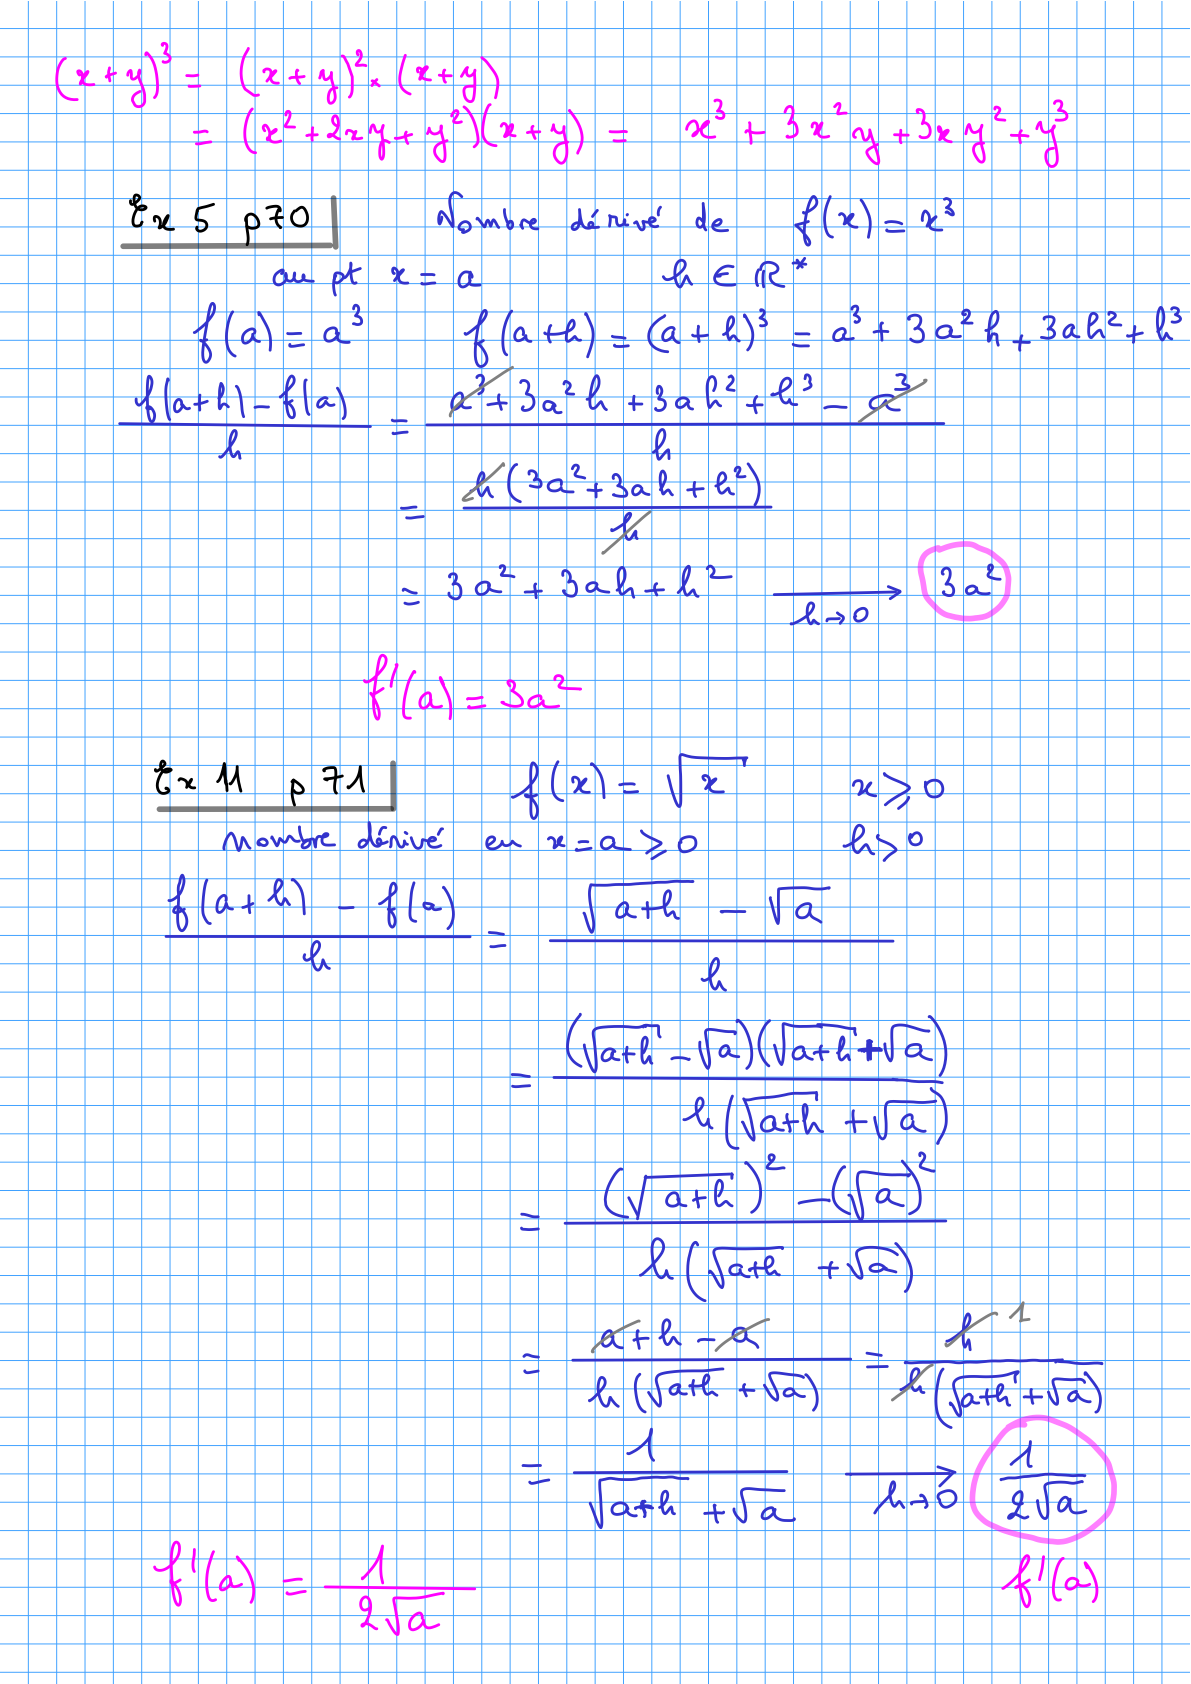 (x+y)³ = (x+y)² × (x+y)
= (x²+2xy+y²)(x+y) = x³ + 3x²y + 3xy² + y³
Ex 5 p70 Nombre dérivé de f(x) = x³
au pt x = a h ∈ ℝ*
f(a) = a³ f(a+h) = (a+h)³ = a³ + 3a²h + 3ah² + h³
(f(a+h) – f(a))/h = (a³ + 3a²h + 3ah² + h³ – a³)/h
= h(3a²+3ah+h²)/h
= 3a² + 3ah + h² ⟶ h→0 3a²
f'(a) = 3a²
Ex 11 p 71 f(x) = √x x ⩾ 0
nombre dérivé en x = a ⩾ 0 h > 0
(f(a+h) – f(a))/h = (√(a+h) – √a)/h
= (√(a+h) – √a)(√(a+h) + √a)/(h(√(a+h) + √a))
= ((√(a+h))² – (√a)²)/(h(√(a+h) + √a))
= (a+h–a)/(h(√(a+h) + √a)) = h 1/(h(√(a+h) + √a))
= 1/(√(a+h) + √a) ⟶ h→0 1/(2√a)
f'(a) = 1/(2√a) f'(a)